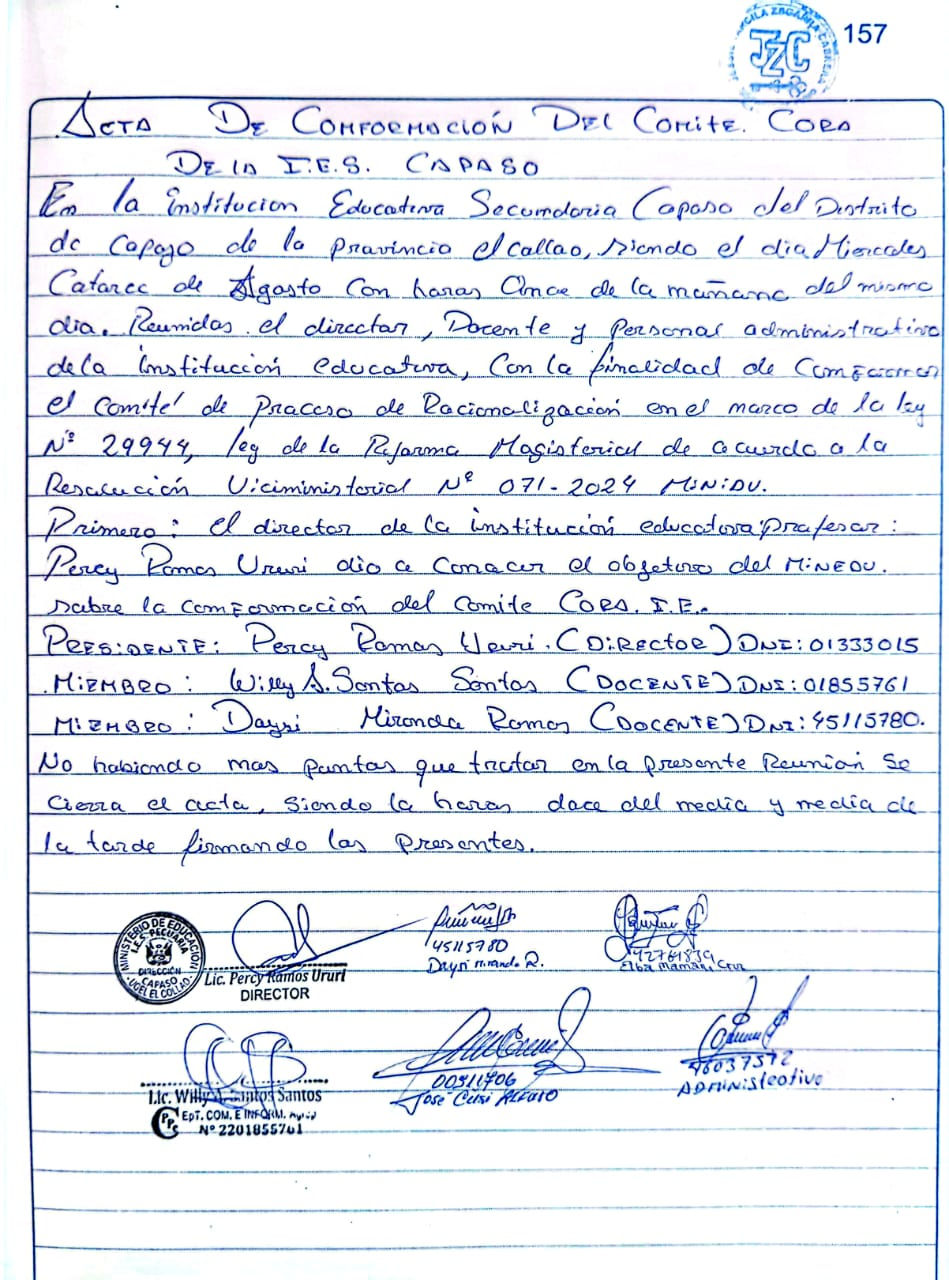 157
JZC
Acta De Comformación Del Comite. Cora
De la I.E.S. Capaso
En la institucion Educativa Secundaria Capaso del Distrito
de Capaso de la provincia el callao, siendo el dia Miercoles
Catorce de Agosto con horas Once de la mañana del mismo
dia. Reunidos el director, Docente y personal administrativo
de la institución educativa, Con la finalidad de comformar
el comité de Proceso de Racionalización en el marco de la ley
Nº 29944, ley de la Reforma Magisterial de acuerdo a la
Resolución Viciministerial Nº 071-2024 MINIDU.
Primero: el director de la institución educativa profesor:
Percy Ramos Ururi dio a conocer el objetivo del MINEDU.
sobre la comformación del comite CORA. I.E.
PRESIDENTE: Percy Ramos Ururi. (DIRECTOR) DNI: 01333015
MIEMBRO: Willy A. Santos Santos (DOCENTE) DNI: 01855761
MIEMBRO: Daysi Miranda Ramos (DOCENTE) DNI: 45115780.
No habiendo mas puntos que tratar en la presente Reunión se
cierra el acta, siendo la horas doce del media y media de
la tarde firmando los presentes.
MINISTERIO DE EDUCACION
I.E.S. PECUARIA
DIRECCIÓN
CAPASO
UGEL EL COLLAO
Lic. Percy Ramos Ururi
DIRECTOR
45115780
Daysi Miranda R.
42761839
Elba Mamani Cruz
Lic. Willy A. Santos Santos
EPT. COM. E INFORM.
Nº 2201855761
00511706
Jose Cusi Alfaro
46037372
Administrativo